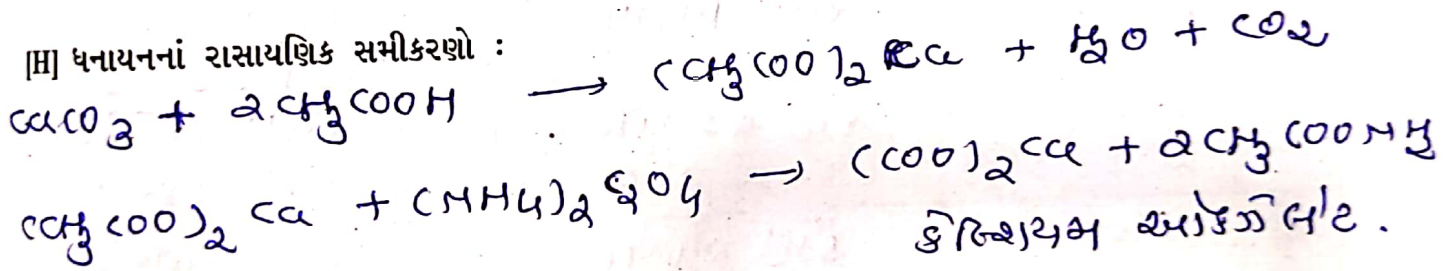 [H] ધનાયનનાં રાસાયણિક સમીકરણો :
CaCO3 + 2CH3COOH ⟶ (CH3COO)2 Ca + H2O + CO2
(CH3COO)2 Ca + (NH4)2 C2O4 → (COO)2 Ca + 2CH3COONH4
કેલ્શિયમ ઓક્ઝેલેટ .